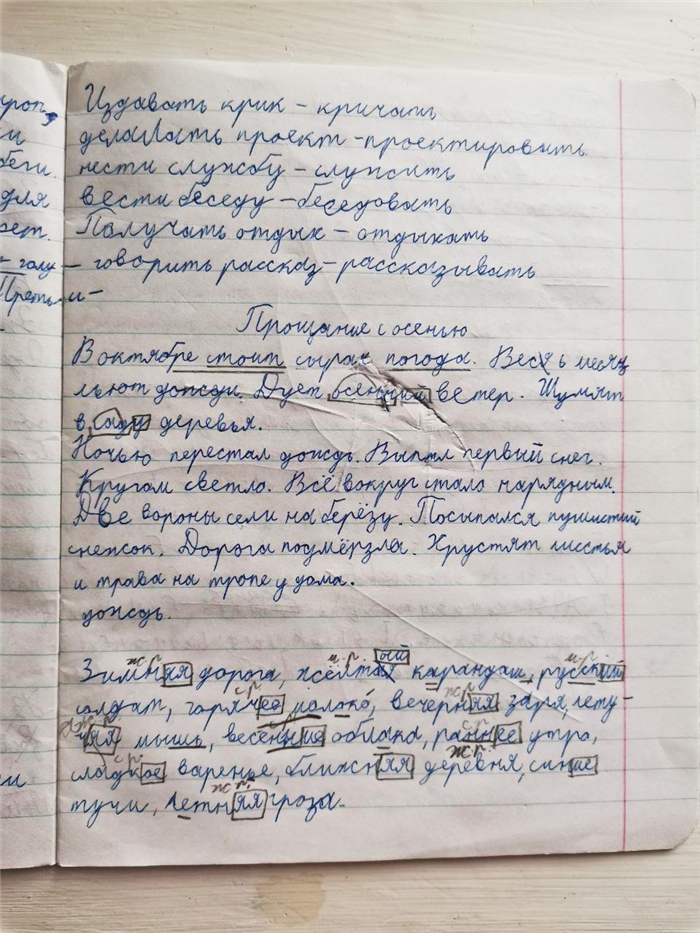 Издавать крик – кричать
делать проект – проектировать
нести службу – служить
вести беседу – беседовать
Получать отдых – отдыхать
говорить рассказ – рассказывать
Прощание с осенью
В октябре стоит сырая погода. Весь месяц
льют дожди. Дует осенний ветер. Шумят
в саду деревья.
Ночью перестал дождь. Выпал первый снег.
Кругом светло. Всё вокруг стало нарядным.
Две вороны сели на берёзу. Посыпался пушистый
снежок. Дорога подмёрзла. Хрустят листья
и трава на тропе у дома.
дождь.
ж.р. и.р. ый и.р.
Зимняя дорога, жёлтый карандаш, русский
с.р. ж.р.
солдат, горячее молоко, вечерняя заря, лету-
ж.р. с.р.
чая мышь, весенние облака, раннее утро,
с.р. ж.р.
сладкое варенье, ближняя деревня, синие
ж.р.
тучи, летняя гроза.